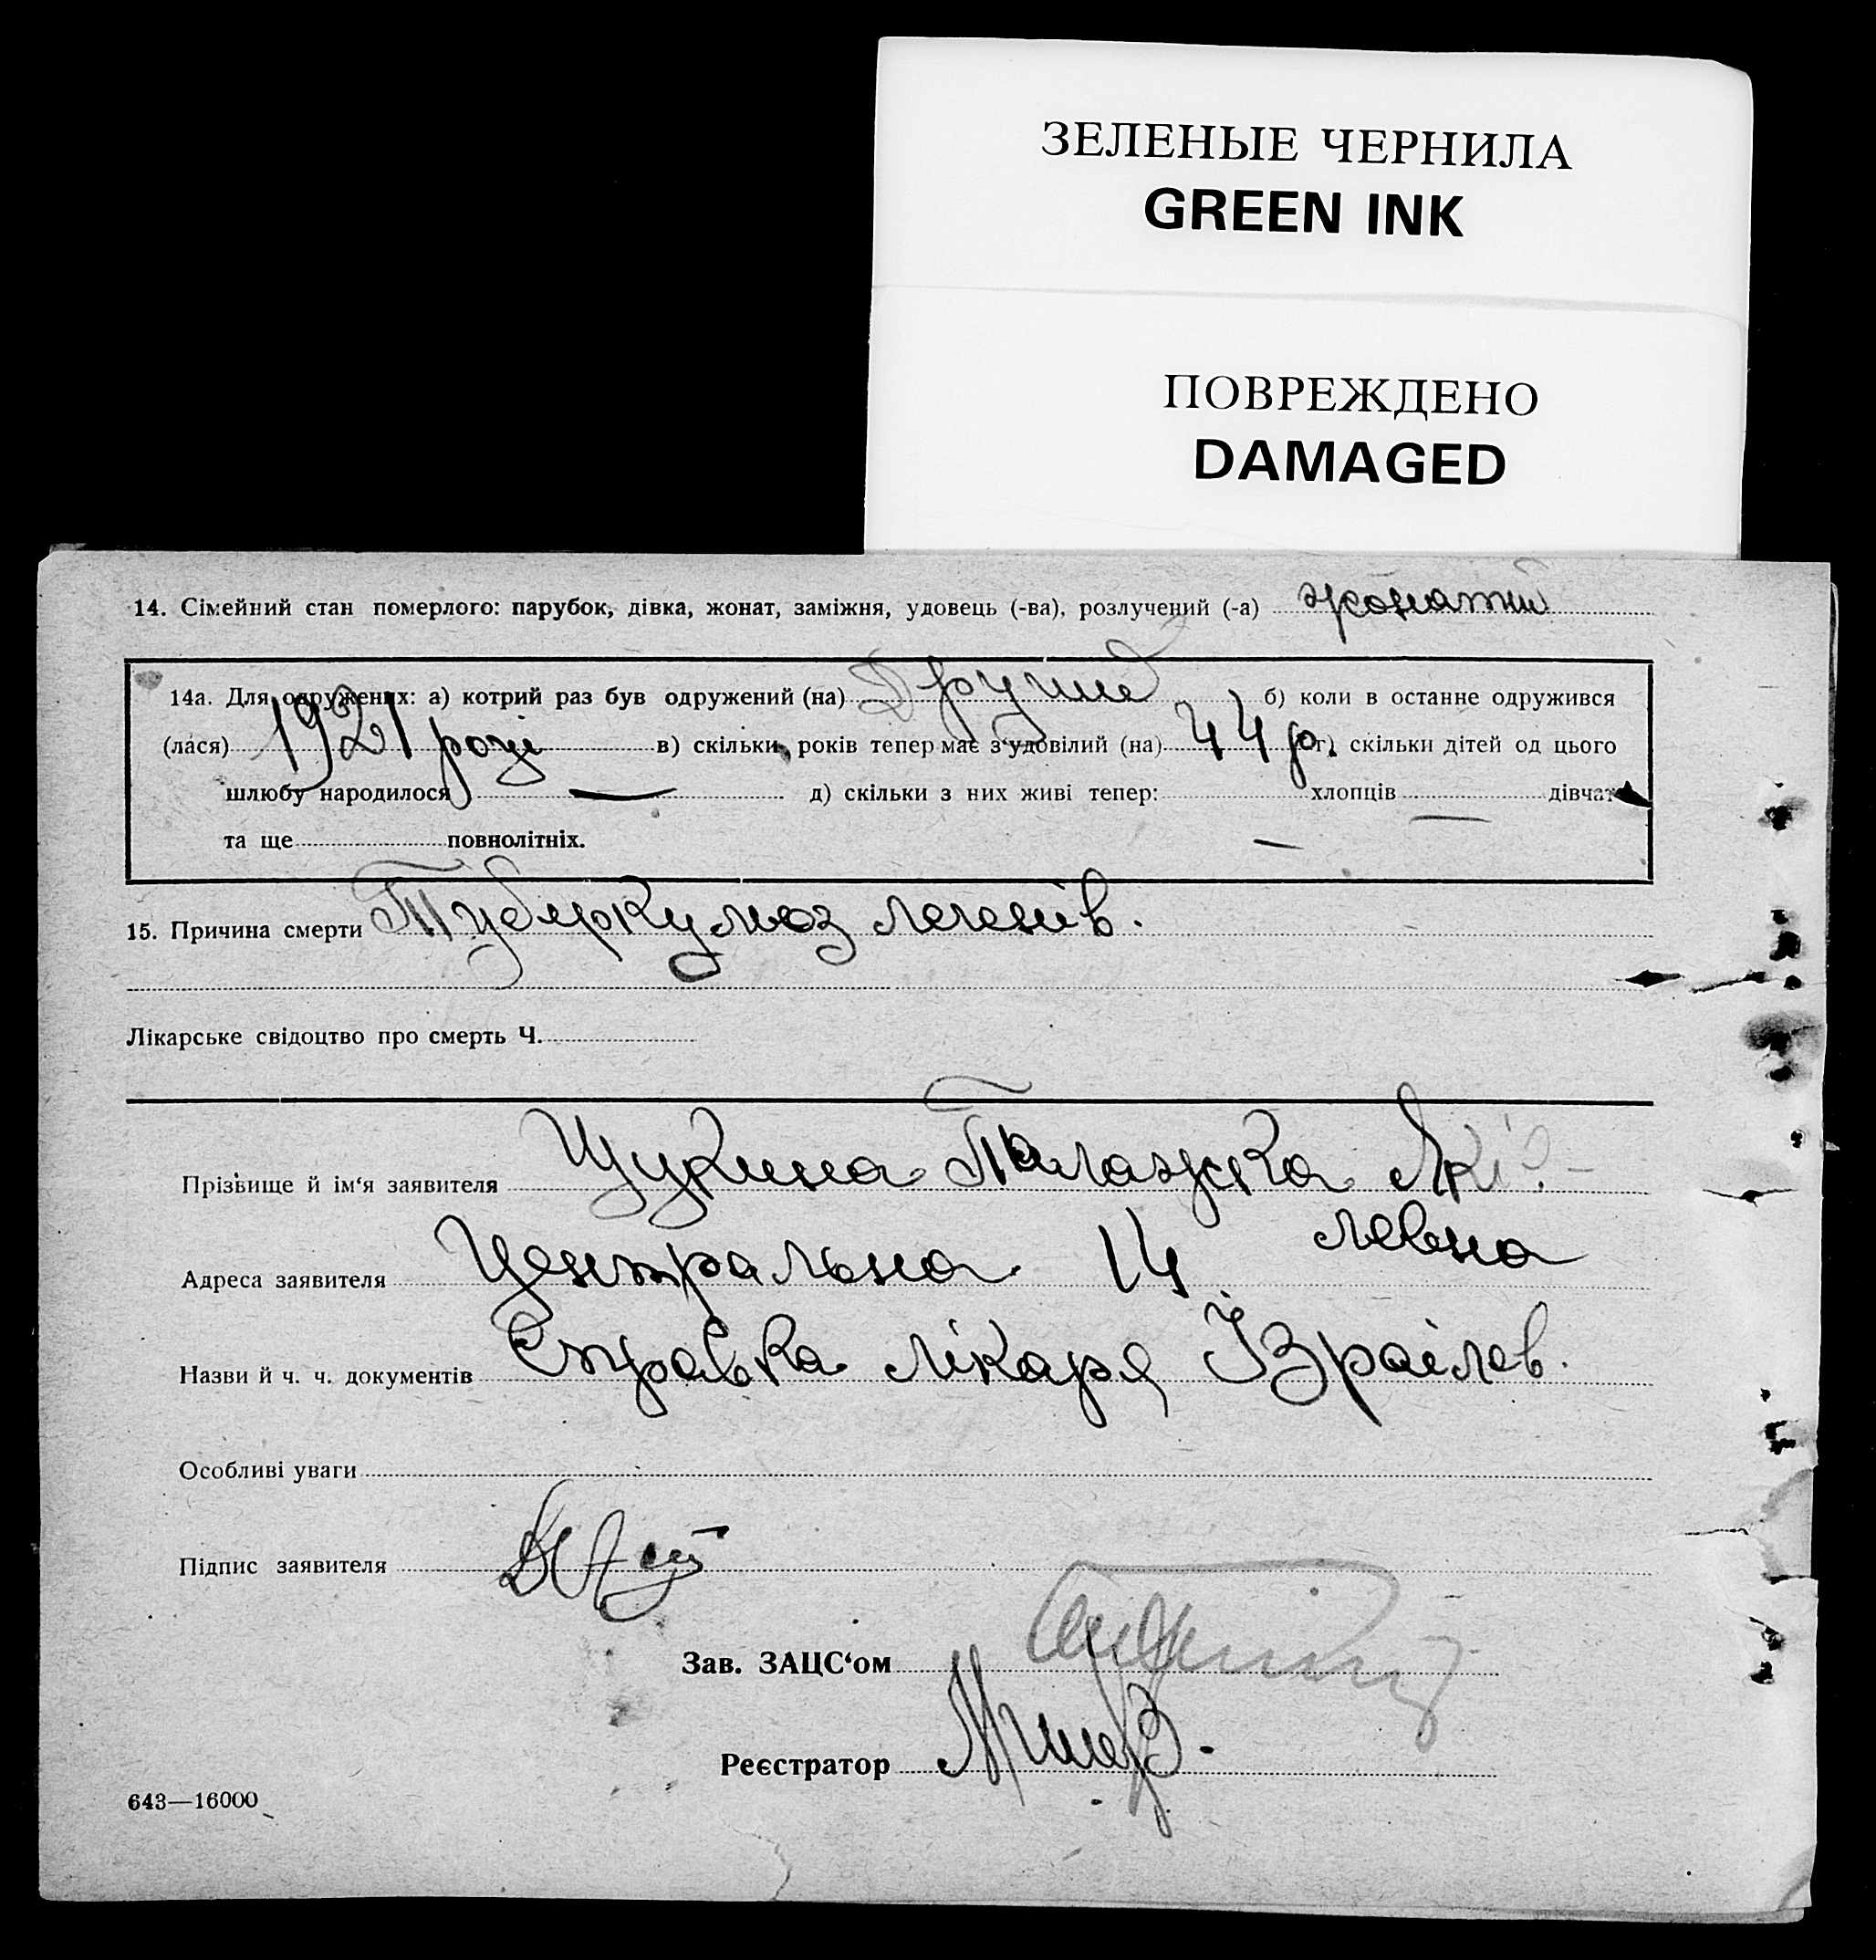 ЗЕЛЕНЫЕ ЧЕРНИЛА
GREEN INK
ПОВРЕЖДЕНО
DAMAGED
14. Сімейний стан померлого: парубок, дівка, жонат, заміжня, удовець (-ва), розлучений (-а) жонатий
14а. Для одружених: а) котрий раз був одружений (на) Другий б) коли в останне одружився
(лася) 1921 році в) скільки років тепер має з‘удовілий (на) 44 р. г) скільки дітей од цього
шлюбу народилося — д) скільки з них живі тепер: — хлопців — дівчат
та ще повнолітніх.
15. Причина смерти Туберкульоз легенів.
Лікарське свідоцтво про смерть Ч.
Прізвище й ім‘я заявителя Щукина Палажка Які-
левна
Адреса заявителя Центральна 14
Назви й ч. ч. документів Справка лікаря Ізраілев.
Особливі уваги
Підпис заявителя
Зав. ЗАЦС‘ом
Реєстратор
643—16000